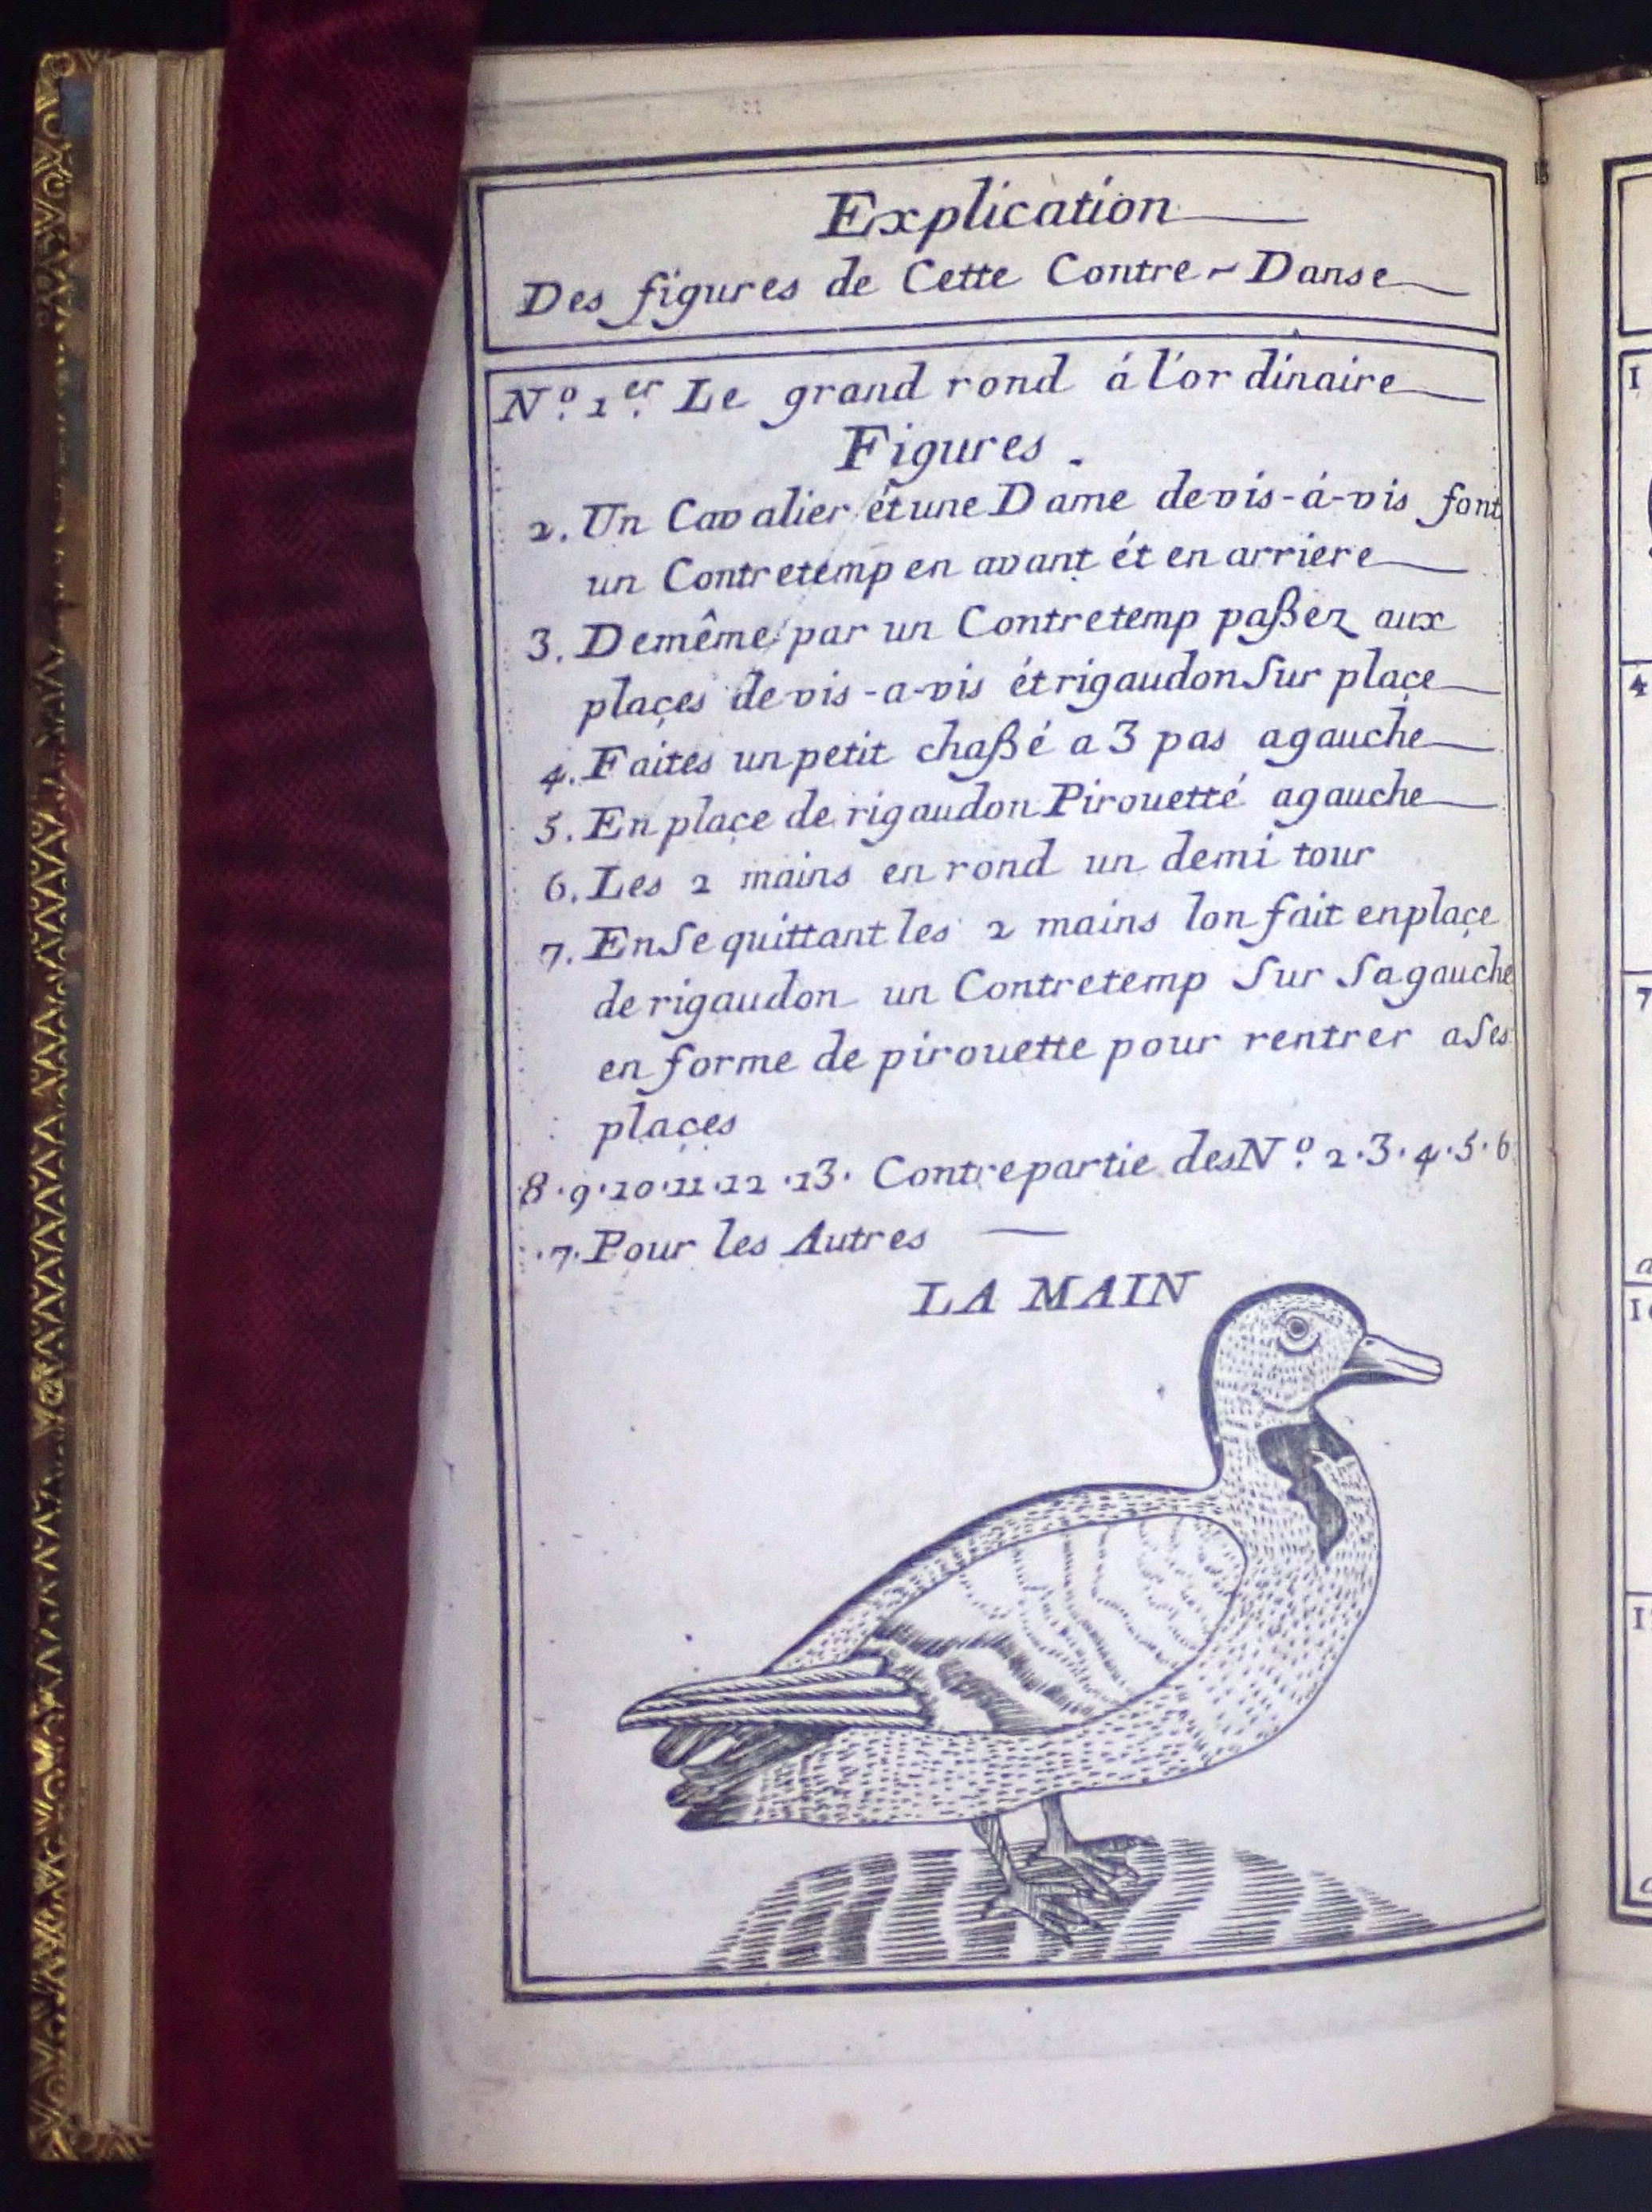 Explication
Des figures de Cette Contre-Danse
N.º 1.er Le grand rond á l'ordinaire
Figures.
2. Un Cavalier ét une Dame de vis-á-vis font
un Contretemp en avant ét en arriere
3. De même par un Contretemp paßez aux
plaçes de vis-a-vis ét rigaudon sur plaçe
4. Faites un petit chaßé a 3 pas a gauche
5. En plaçe de rigaudon Pirouetté a gauche
6. Les 2 mains en rond un demi tour
7. En se quittant les 2 mains lon fait en plaçe
de rigaudon un Contretemp sur sa gauche
en forme de pirouette pour rentrer a ses
plaçes
8.9.10.11.12.13. Contre partie des N.º 2.3.4.5.6
.7. Pour les Autres
LA MAIN
1
4
7